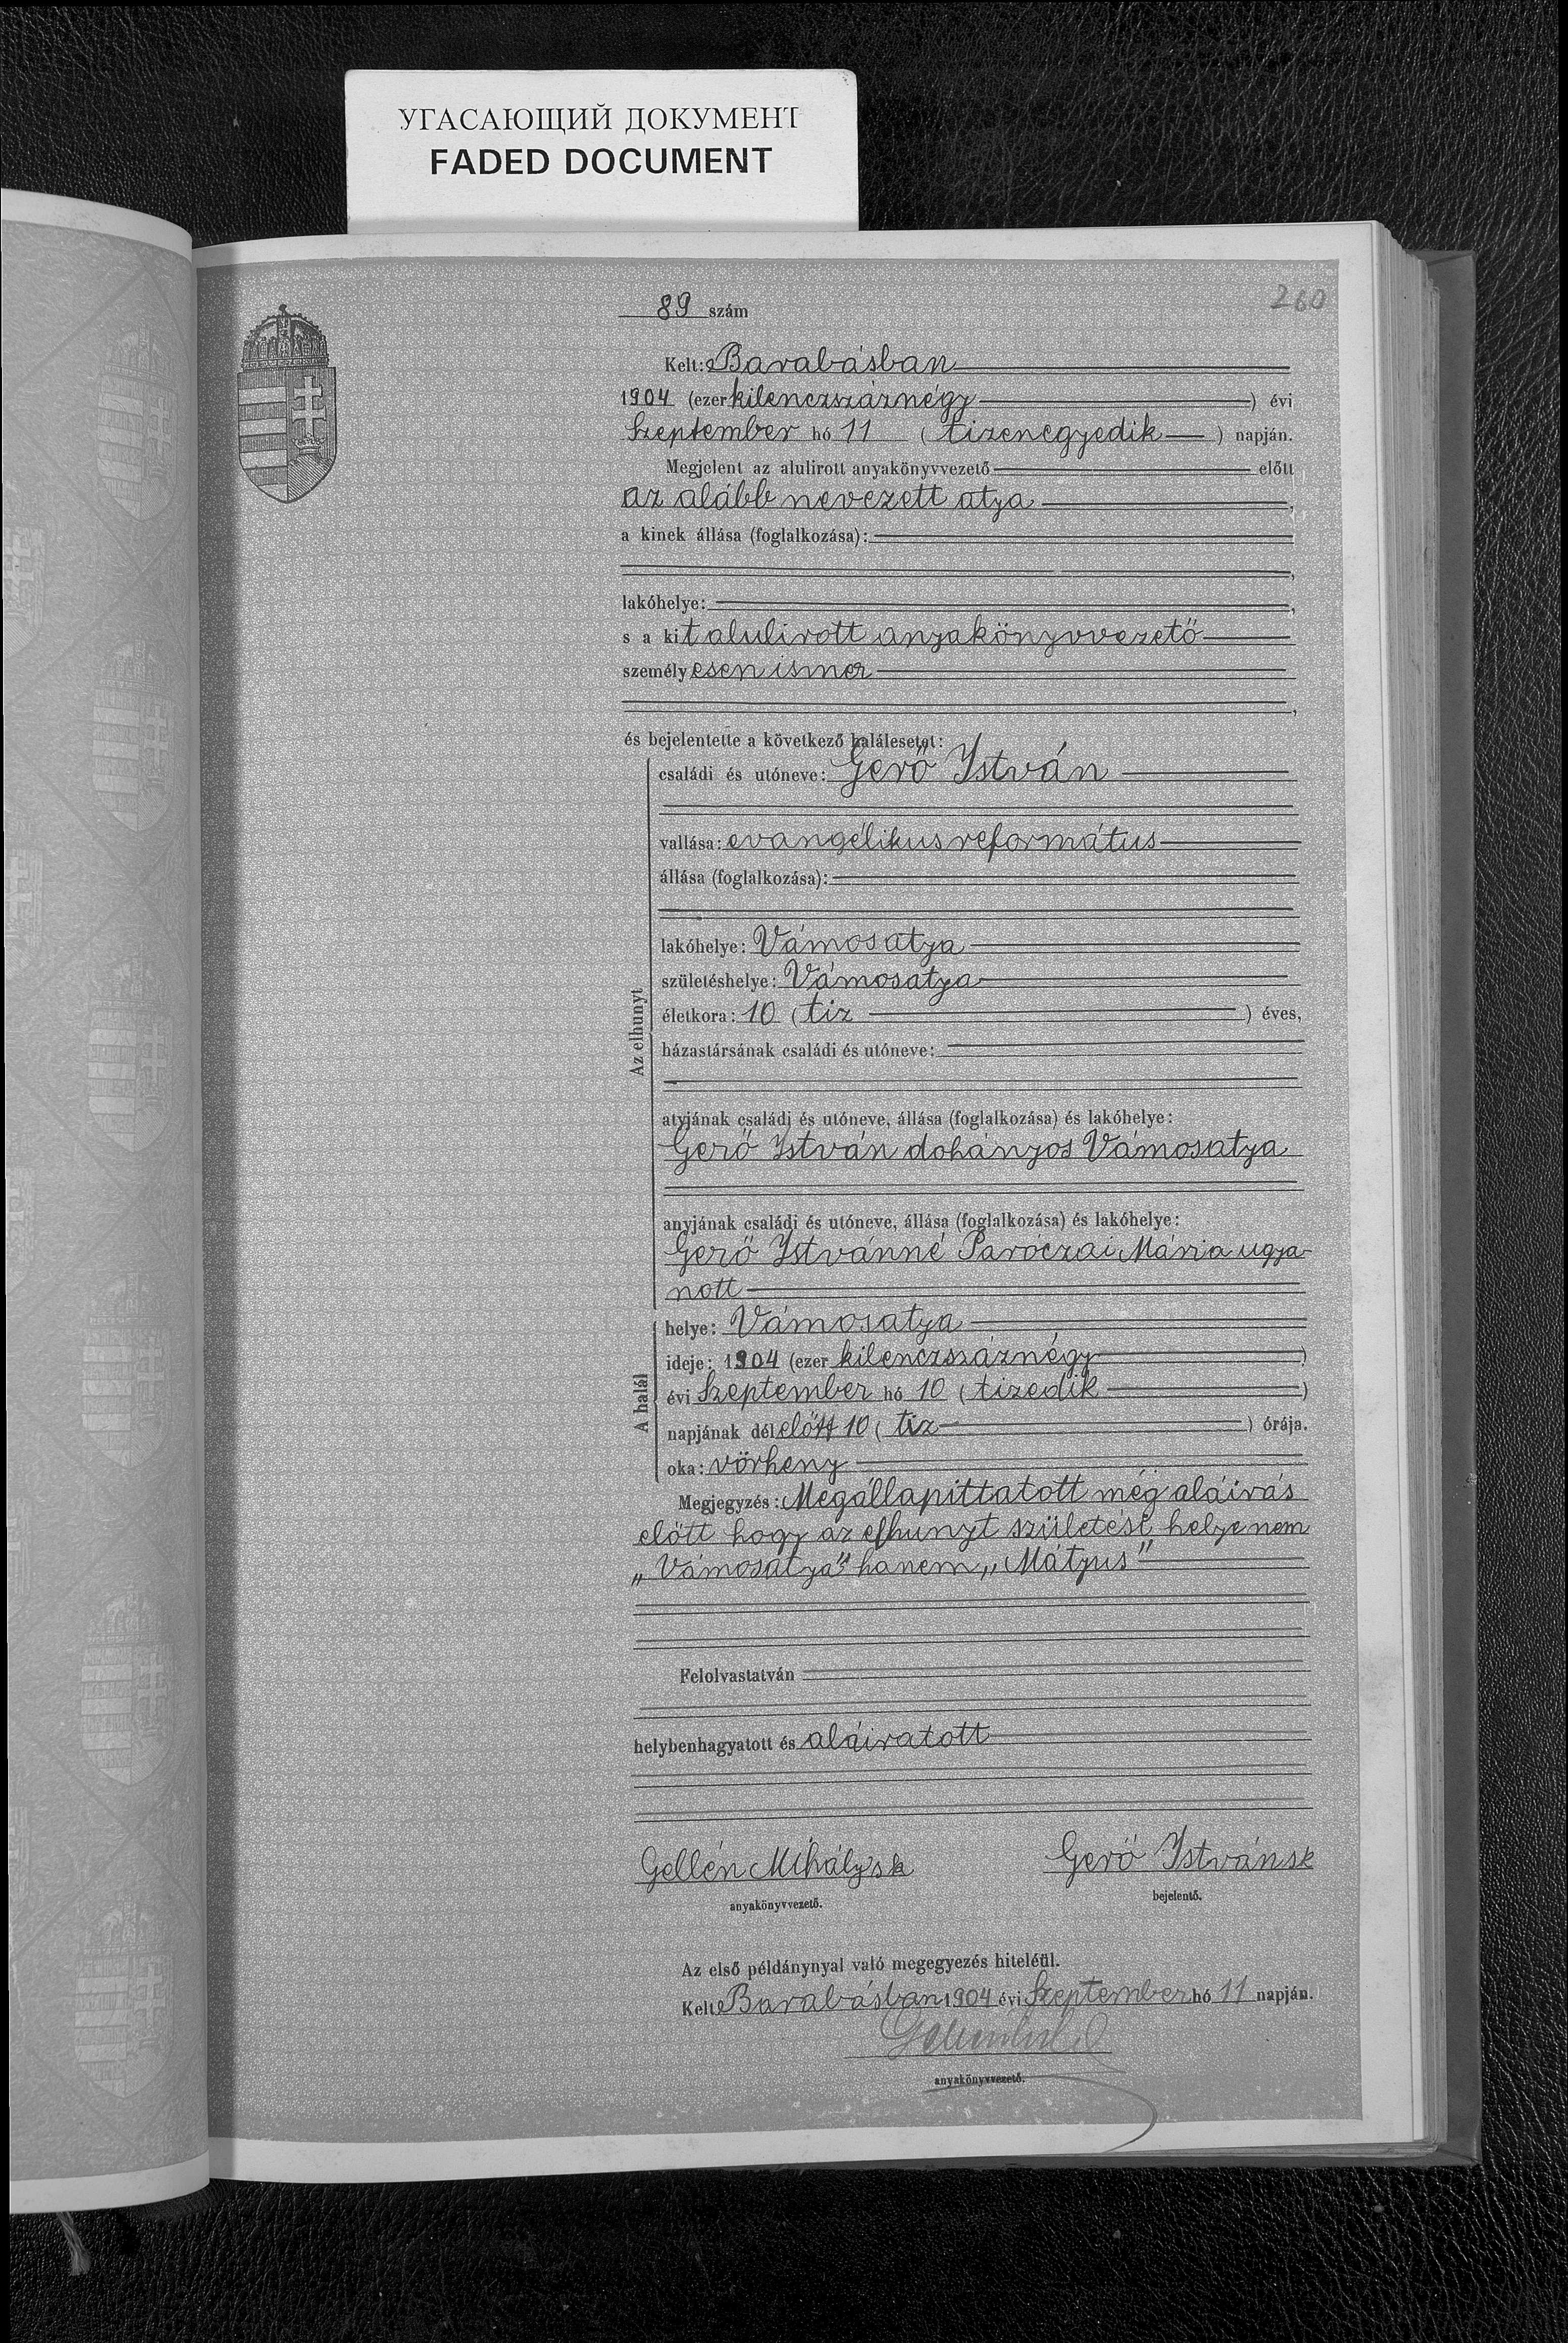 УГАСАЮЩИЙ ДОКУМЕНТ
FADED DOCUMENT
260
89 szám
Kelt: Barabásban
1904 (ezer kilenczszáznégy ) évi
Szeptember hó 11 ( tizenegyedik ) napján.
Megjelent az alulirott anyakönyvvezető előtt
az alább nevezett atya ,
a kinek állása (foglalkozása):
,
lakóhelye: ,
s a kit alulirott anyakönyvvezető
személyesen ismer
,
és bejelentette a következő halálesetet:
Az elhunyt
családi és utóneve: Gerő István
vallása: evangélikus református
állása (foglalkozása):
lakóhelye: Vámosatya
születéshelye: Vámosatya
életkora: 10 ( tiz ) éves,
házastársának családi és utóneve:
atyjának családi és utóneve, állása (foglalkozása) és lakóhelye:
Gerő István dohányos Vámosatya
anyjának családi és utóneve, állása (foglalkozása) és lakóhelye:
Gerő Istvánné Paróczai Mária ugya-
nott
A halál
helye: Vámosatya
ideje: 1904 (ezer kilenczszáznégy )
évi Szeptember hó 10 ( tizedik )
napjának délelőtt 10 ( tiz ) órája.
oka: vörheny
Megjegyzés: Megállapittatott még aláirás
előtt hogy az elhunyt születési helye nem
„Vámosatya" hanem „Mátyus"
Felolvastatván
helybenhagyatott és aláiratott
Gellén Mihály sk
anyakönyvvezető.
Gerő István sk
bejelentő.
Az első példánynyal való megegyezés hiteléül.
Kelt Barabásban 1904 évi Szeptember hó 11 napján.
anyakönyvvezető.